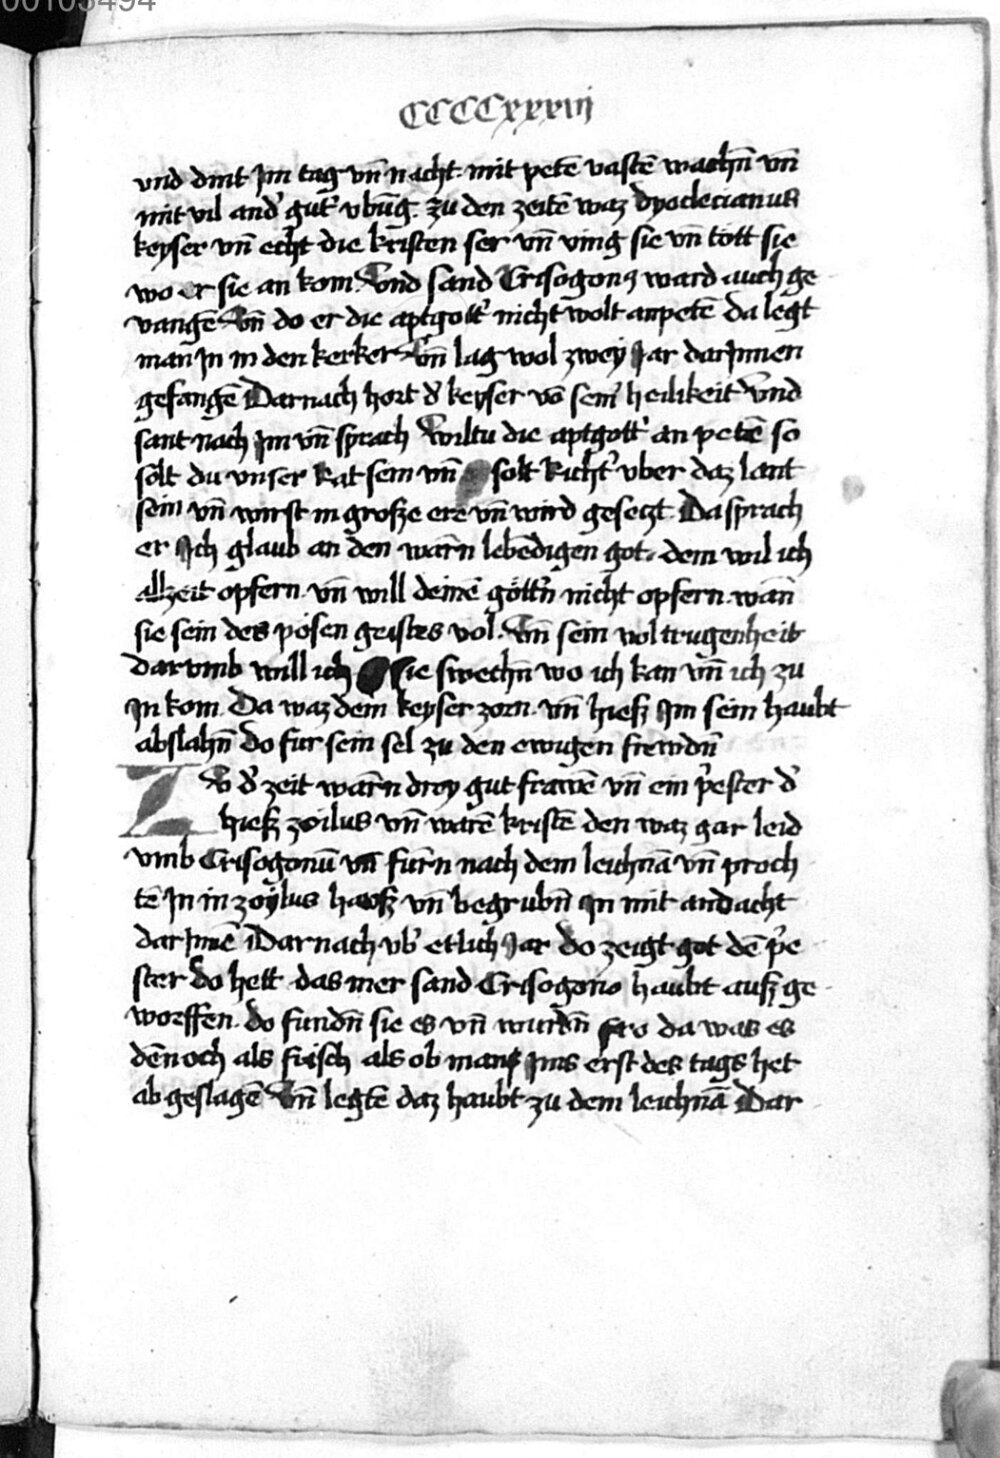 00103494
CCCCxxxvij
vnd dint Jm tag vn̄ nacht. mit petē vastē wachn̄ vn̄
mit vil and' gut' vbūg. zu den zeitē waz dyoclecianus
keyser vn̄ echt die kristen ser vn̄ ving sie vn̄ tott sie
wo er sie an kom Vnd sand Crisogonꝰ ward auch ge
vangē Vn̄ do er die aptgott' nicht wolt anpetē da legt
man Jn in den kerker Vn̄ lag wol zwey Jar darJnnen
gefangē Darnach hort d' keyser vō sein' heilikeit Vnd
sant nach Jm vn̄ sprach Wiltu die aptgott' an petē so
solt du vnser Rat sein vn̄ solt Richt' vber daz lant
sein vn̄ wirst in große ere vn̄ wird gesetzt. Da sprach
er Ich glaub an den warn̄ lebēdigen got. dem wil ich
allzeit opfern. vn̄ will deinē gött'n nicht opfern. wan̄
sie sein des pösen geistes vol. Vn̄ sein vol trugenheit
darvmb will ich sie swechn̄ wo ich kan vn̄ ich zu
Jn kom. Da waz dem keyser zorn. vn̄ hieß Jm sein haubt
abslahn̄ do fur sein sel zu den ewigen frewdn̄
Zv d' zeit warn̄ drey gut frawē vn̄ ein p'ester d'
hieß zoilus vn̄ warē kristē den waz gar leid
vmb Crisogonū vn̄ furn̄ nach dem leichnā vn̄ proch
tē Jn in zoylus hawß vn̄ begrubn̄ Jn mit andacht
darJnnē Darnach vb' etlich Jar do zeigt got dē p'e
ster do hett das mer sand Crisogono haubt auß ge
worffen. do fundn̄ sie es vn̄ wurdn̄ fro da was es
dēnoch als frisch als ob man Jms erst des tags het
ab geslagē Vn̄ legtē daz haubt zu dem leichnā Dar